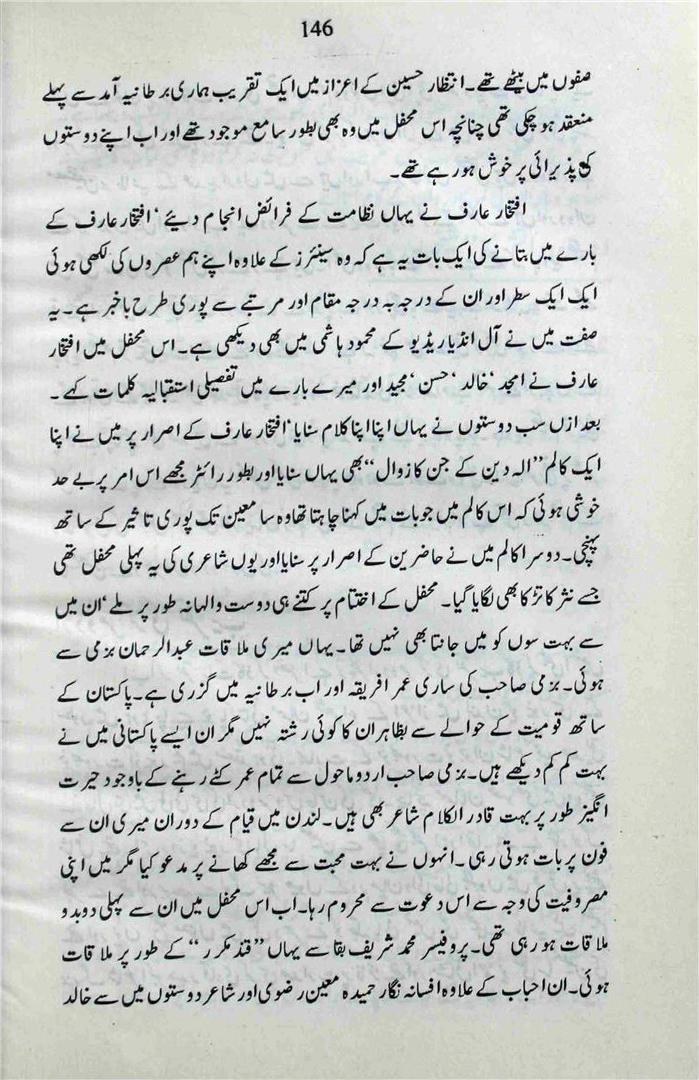 146
صفوں میں بیٹھے تھے۔ انتظار حسین کے اعزاز میں ایک تقریب ہماری برطانیہ آمد سے پہلے
منعقد ہو چکی تھی چنانچہ اس محفل میں وہ بھی بطور سامع موجود تھے اور اب اپنے دوستوں
کی پذیرائی پر خوش ہو رہے تھے۔
افتخار عارف نے یہاں نظامت کے فرائض انجام دیئے ‘ افتخار عارف کے
بارے میں بتانے کی ایک بات یہ ہے کہ وہ سینئرز کے علاوہ اپنے ہم عصروں کی لکھی ہوئی
ایک ایک سطر اور ان کے درجہ بہ درجہ مقام اور مرتبے سے پوری طرح باخبر ہے۔ یہ
صفت میں نے آل انڈیا ریڈیو کے محمود ہاشمی میں بھی دیکھی ہے۔ اس محفل میں افتخار
عارف نے امجد ‘ خالد ‘ حسن ‘ مجید اور میرے بارے میں تفصیلی استقبالیہ کلمات کہے۔
بعد ازں سب دوستوں نے یہاں اپنا اپنا کلام سنایا ‘ افتخار عارف کے اصرار پر میں نے اپنا
ایک کالم ’’الہ دین کے جن کا زوال‘‘ بھی یہاں سنایا اور بطور رائٹر مجھے اس امر پر بے حد
خوشی ہوئی کہ اس کالم میں جو بات میں کہنا چاہتا تھا وہ سامعین تک پوری تاثیر کے ساتھ
پہنچی۔ دوسرا کالم میں نے حاضرین کے اصرار پر سنایا اور یوں شاعری کی یہ پہلی محفل تھی
جسے نثر کا تڑکا بھی لگایا گیا۔ محفل کے اختتام پر کتنے ہی دوست والہانہ طور پر ملے ‘ ان میں
سے بہت سوں کو میں جانتا بھی نہیں تھا۔ یہاں میری ملاقات عبدالرحمان بزمی سے
ہوئی۔ بزمی صاحب کی ساری عمر افریقہ اور اب برطانیہ میں گزری ہے۔ پاکستان کے
ساتھ قومیت کے حوالے سے بظاہر ان کا کوئی رشتہ نہیں مگر ان ایسے پاکستانی میں نے
بہت کم کم دیکھے ہیں۔ بزمی صاحب اردو ماحول سے تمام عمر کٹے رہنے کے باوجود حیرت
انگیز طور پر بہت قادر الکلام شاعر بھی ہیں۔ لندن میں قیام کے دوران میری ان سے
فون پر بات ہوتی رہی۔ انہوں نے بہت محبت سے مجھے کھانے پر مدعو کیا مگر میں اپنی
مصروفیت کی وجہ سے اس دعوت سے محروم رہا۔ اب اس محفل میں ان سے پہلی دوبدو
ملاقات ہو رہی تھی۔ پروفیسر محمد شریف بقا سے یہاں ’’قند مکرر‘‘ کے طور پر ملاقات
ہوئی۔ ان احباب کے علاوہ افسانہ نگار حمیدہ معین رضوی اور شاعر دوستوں میں سے خالد